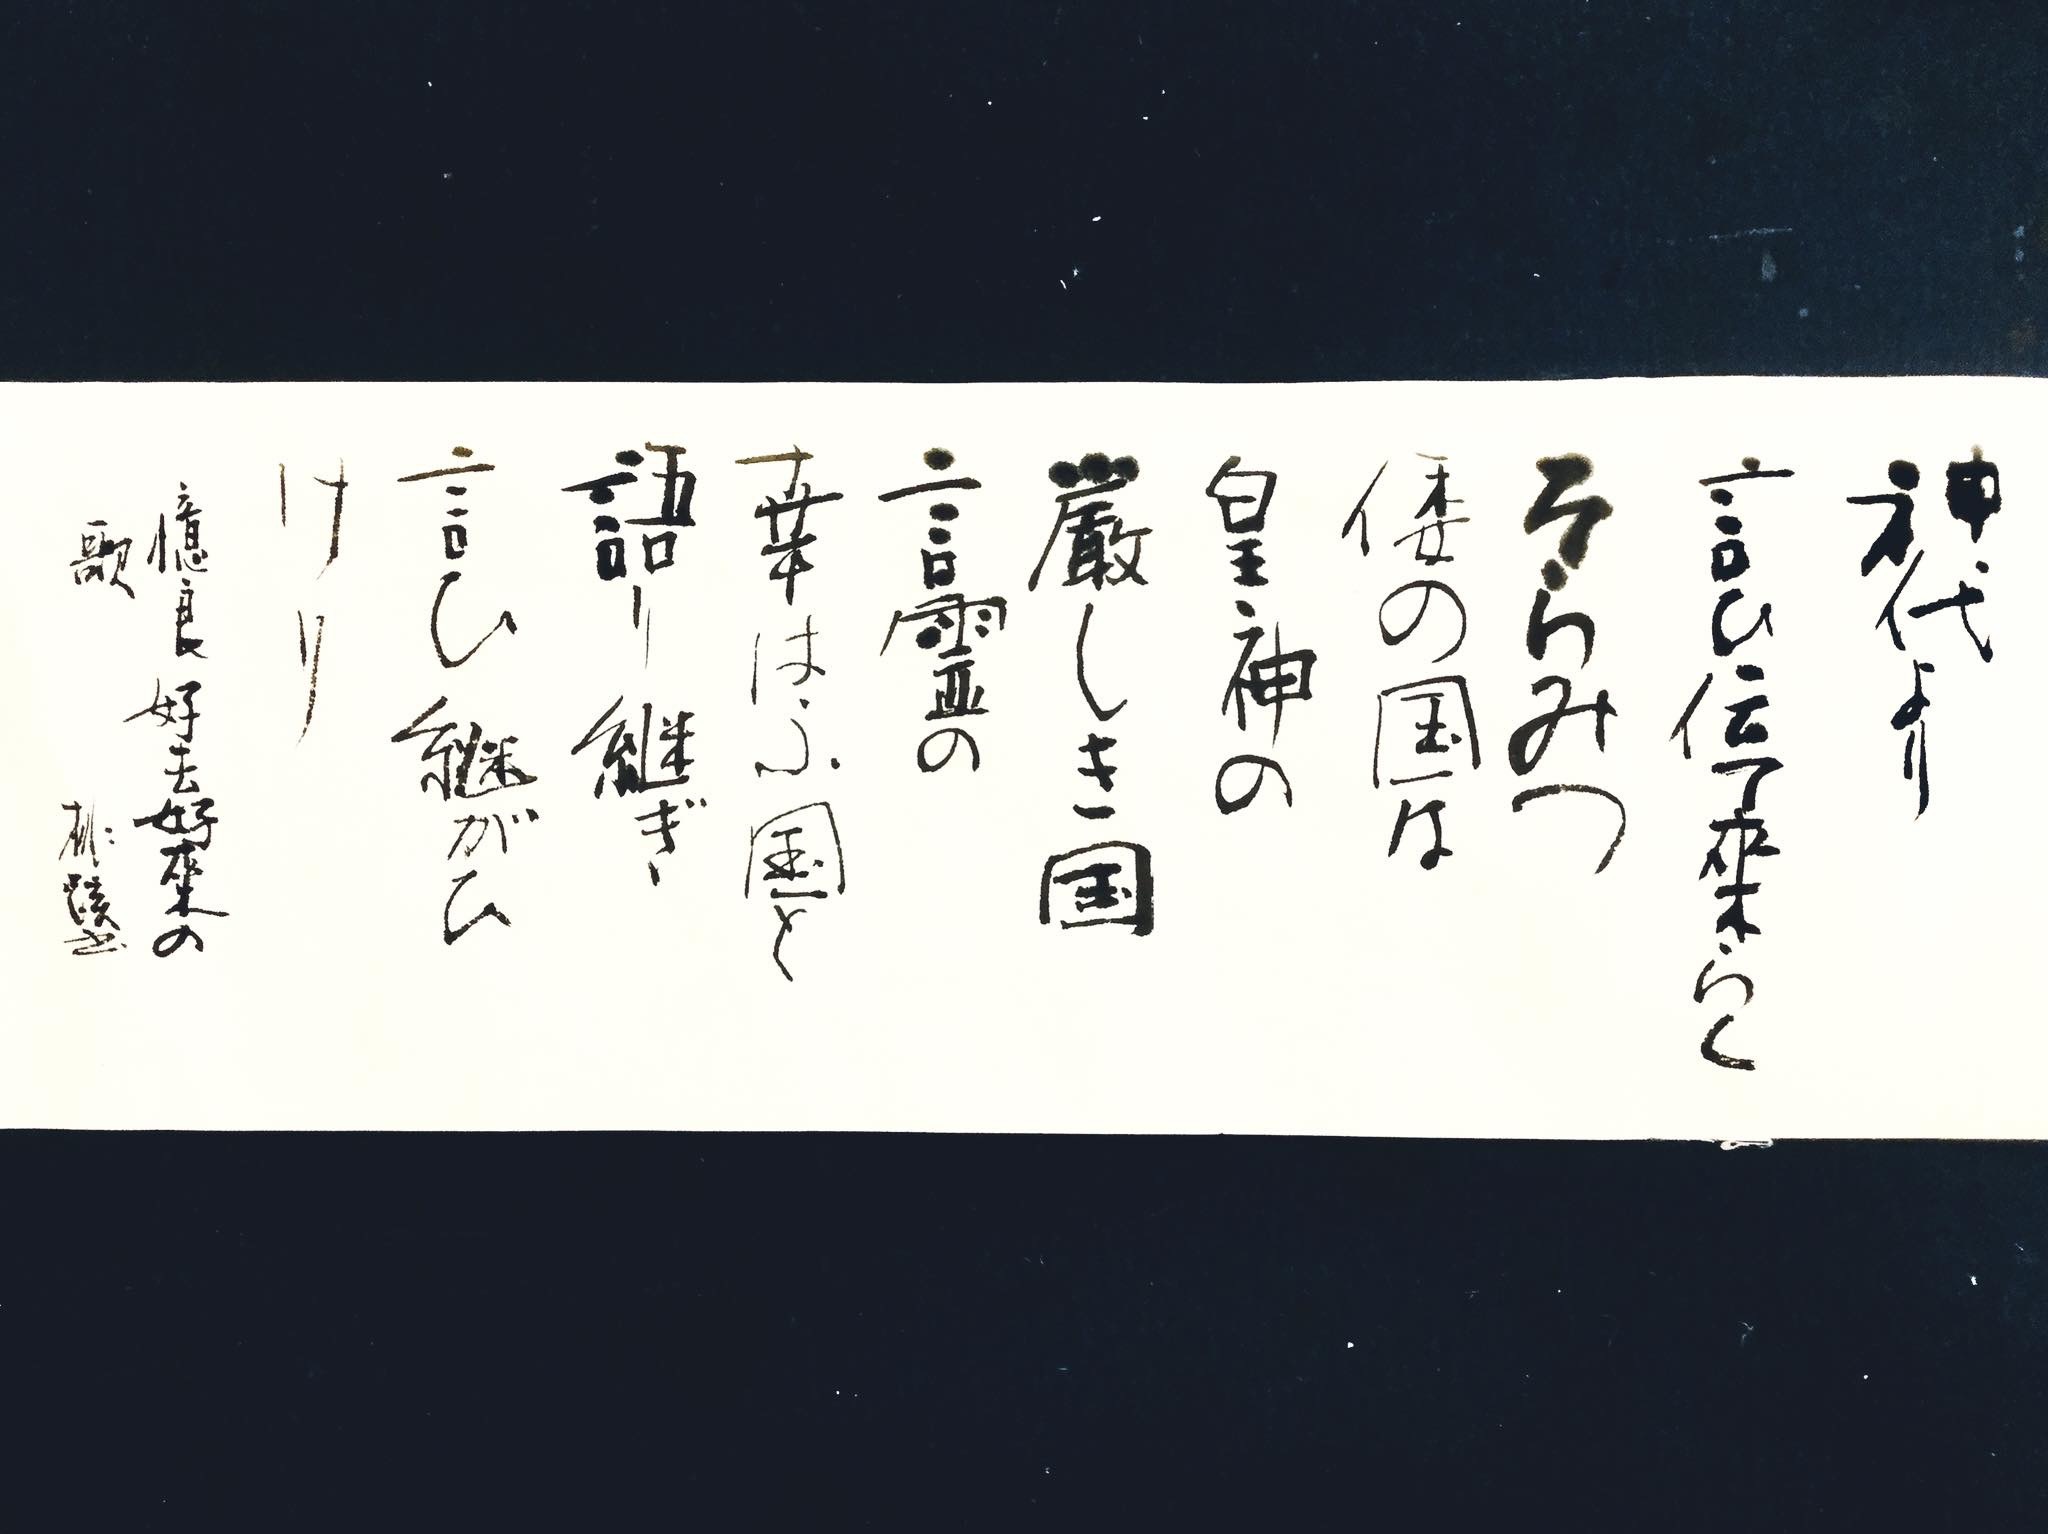 神代より
言ひ伝て来らく
そらみつ
倭の国は
皇神の
厳しき国
言霊の
幸はふ国と
語り継ぎ
言ひ継がひ
けり
憶良 好去好来の
歌